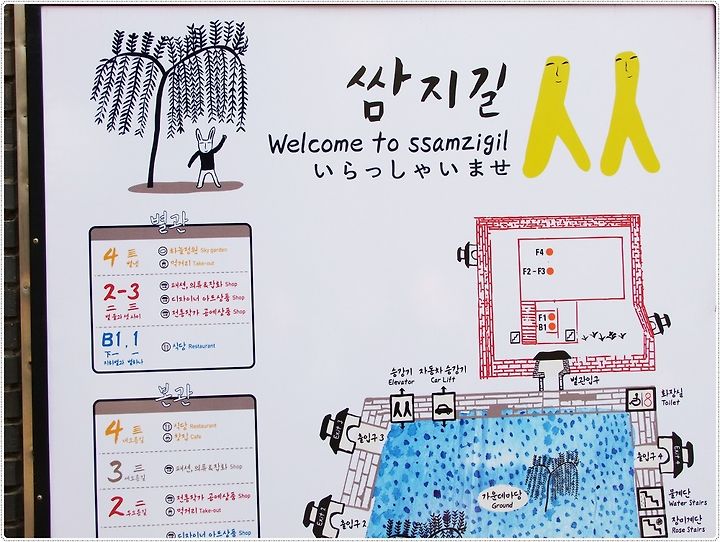 쌈지길
Welcome to ssamzigil
いらっしゃいませ
별관
4 하늘정원 Sky garden
먹거리 Take-out
2-3 패션,의류&잡화 Shop
二 三 디자이너 아트상품 Shop
전통작가 공예상품 Shop
B1.1 식당 Restaurant
下一 一
F4
F2-F3
F1
B1
별관입구
승강기
Elevator
자동차 승강기
Car Lift
화장실
Toilet
본관
4 식당 Restaurant
찻집 Cafe
네오름길
3 패션,의류&잡화 Shop
2 전통작가 공예상품 Shop
먹거리 Take-out
디자이너 아트상품 Shop
Exit 3
출입구 3
Exit 4
출입구 4
Exit 2
출입구 2
가운데마당
Ground
물계단
Water Stairs
장미계단
Rose Stairs